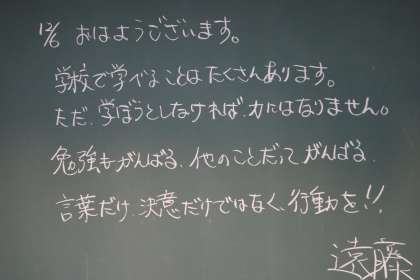 12/6 おはようございます。
学校で学べることはたくさんあります。
ただ、学ぼうとしなければ、力にはなりません。
勉強もがんばる、他のことだってがんばる、
言葉だけ、決意だけではなく、行動を!!
遠藤